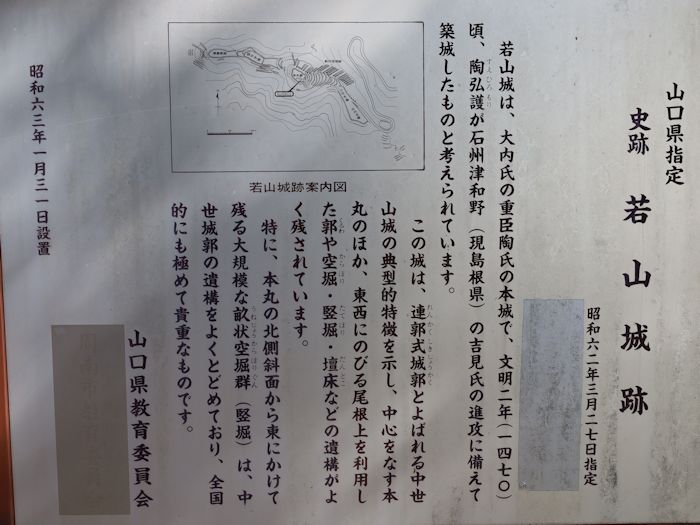 山口県指定
史跡 若山城跡
昭和六二年三月二七日指定
若山城は、大内氏の重臣陶氏の本城で、文明二年(一四七〇)
頃、陶弘護が石州津和野(現島根県)の吉見氏の進攻に備えて
築城したものと考えられています。
この城は、連郭式城郭とよばれる中世
山城の典型的特徴を示し、中心をなす本
丸のほか、東西にのびる尾根上を利用し
た郭や空堀・竪堀・壇床などの遺構がよ
く残されています。
特に、本丸の北側斜面から東にかけて
残る大規模な畝状空堀群(竪堀)は、中
世城郭の遺構をよくとどめており、全国
的にも極めて貴重なものです。
若山城跡案内図
山口県教育委員会
昭和六三年一月三一日設置